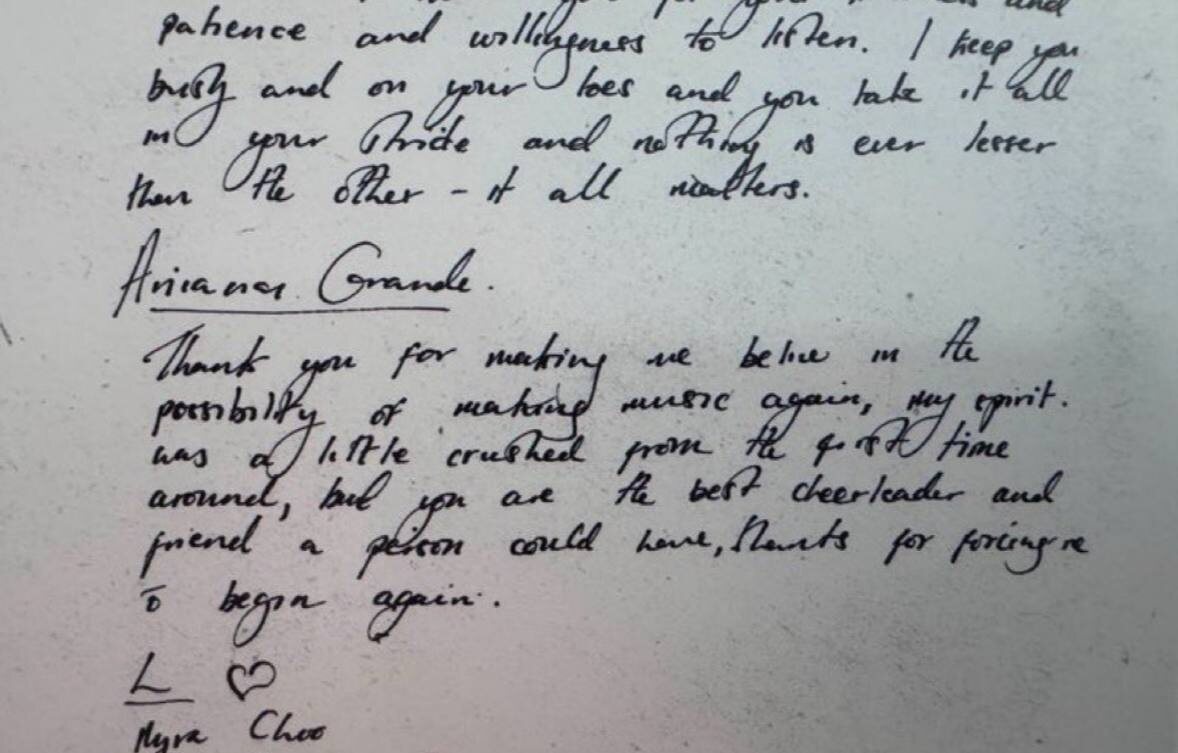 and
patience and willingness to listen. I keep you
busy and on your toes and you take it all
in your stride and nothing is ever lesser
than the other - it all matters.
Ariana Grande.
Thank you for making me belive in the
possibility of making music again, my spirit.
was a little crushed from the first time
around, but you are the best cheerleader and
friend a person could have, thanks for forcing me
to begin again.
L ♡
Myra Choo